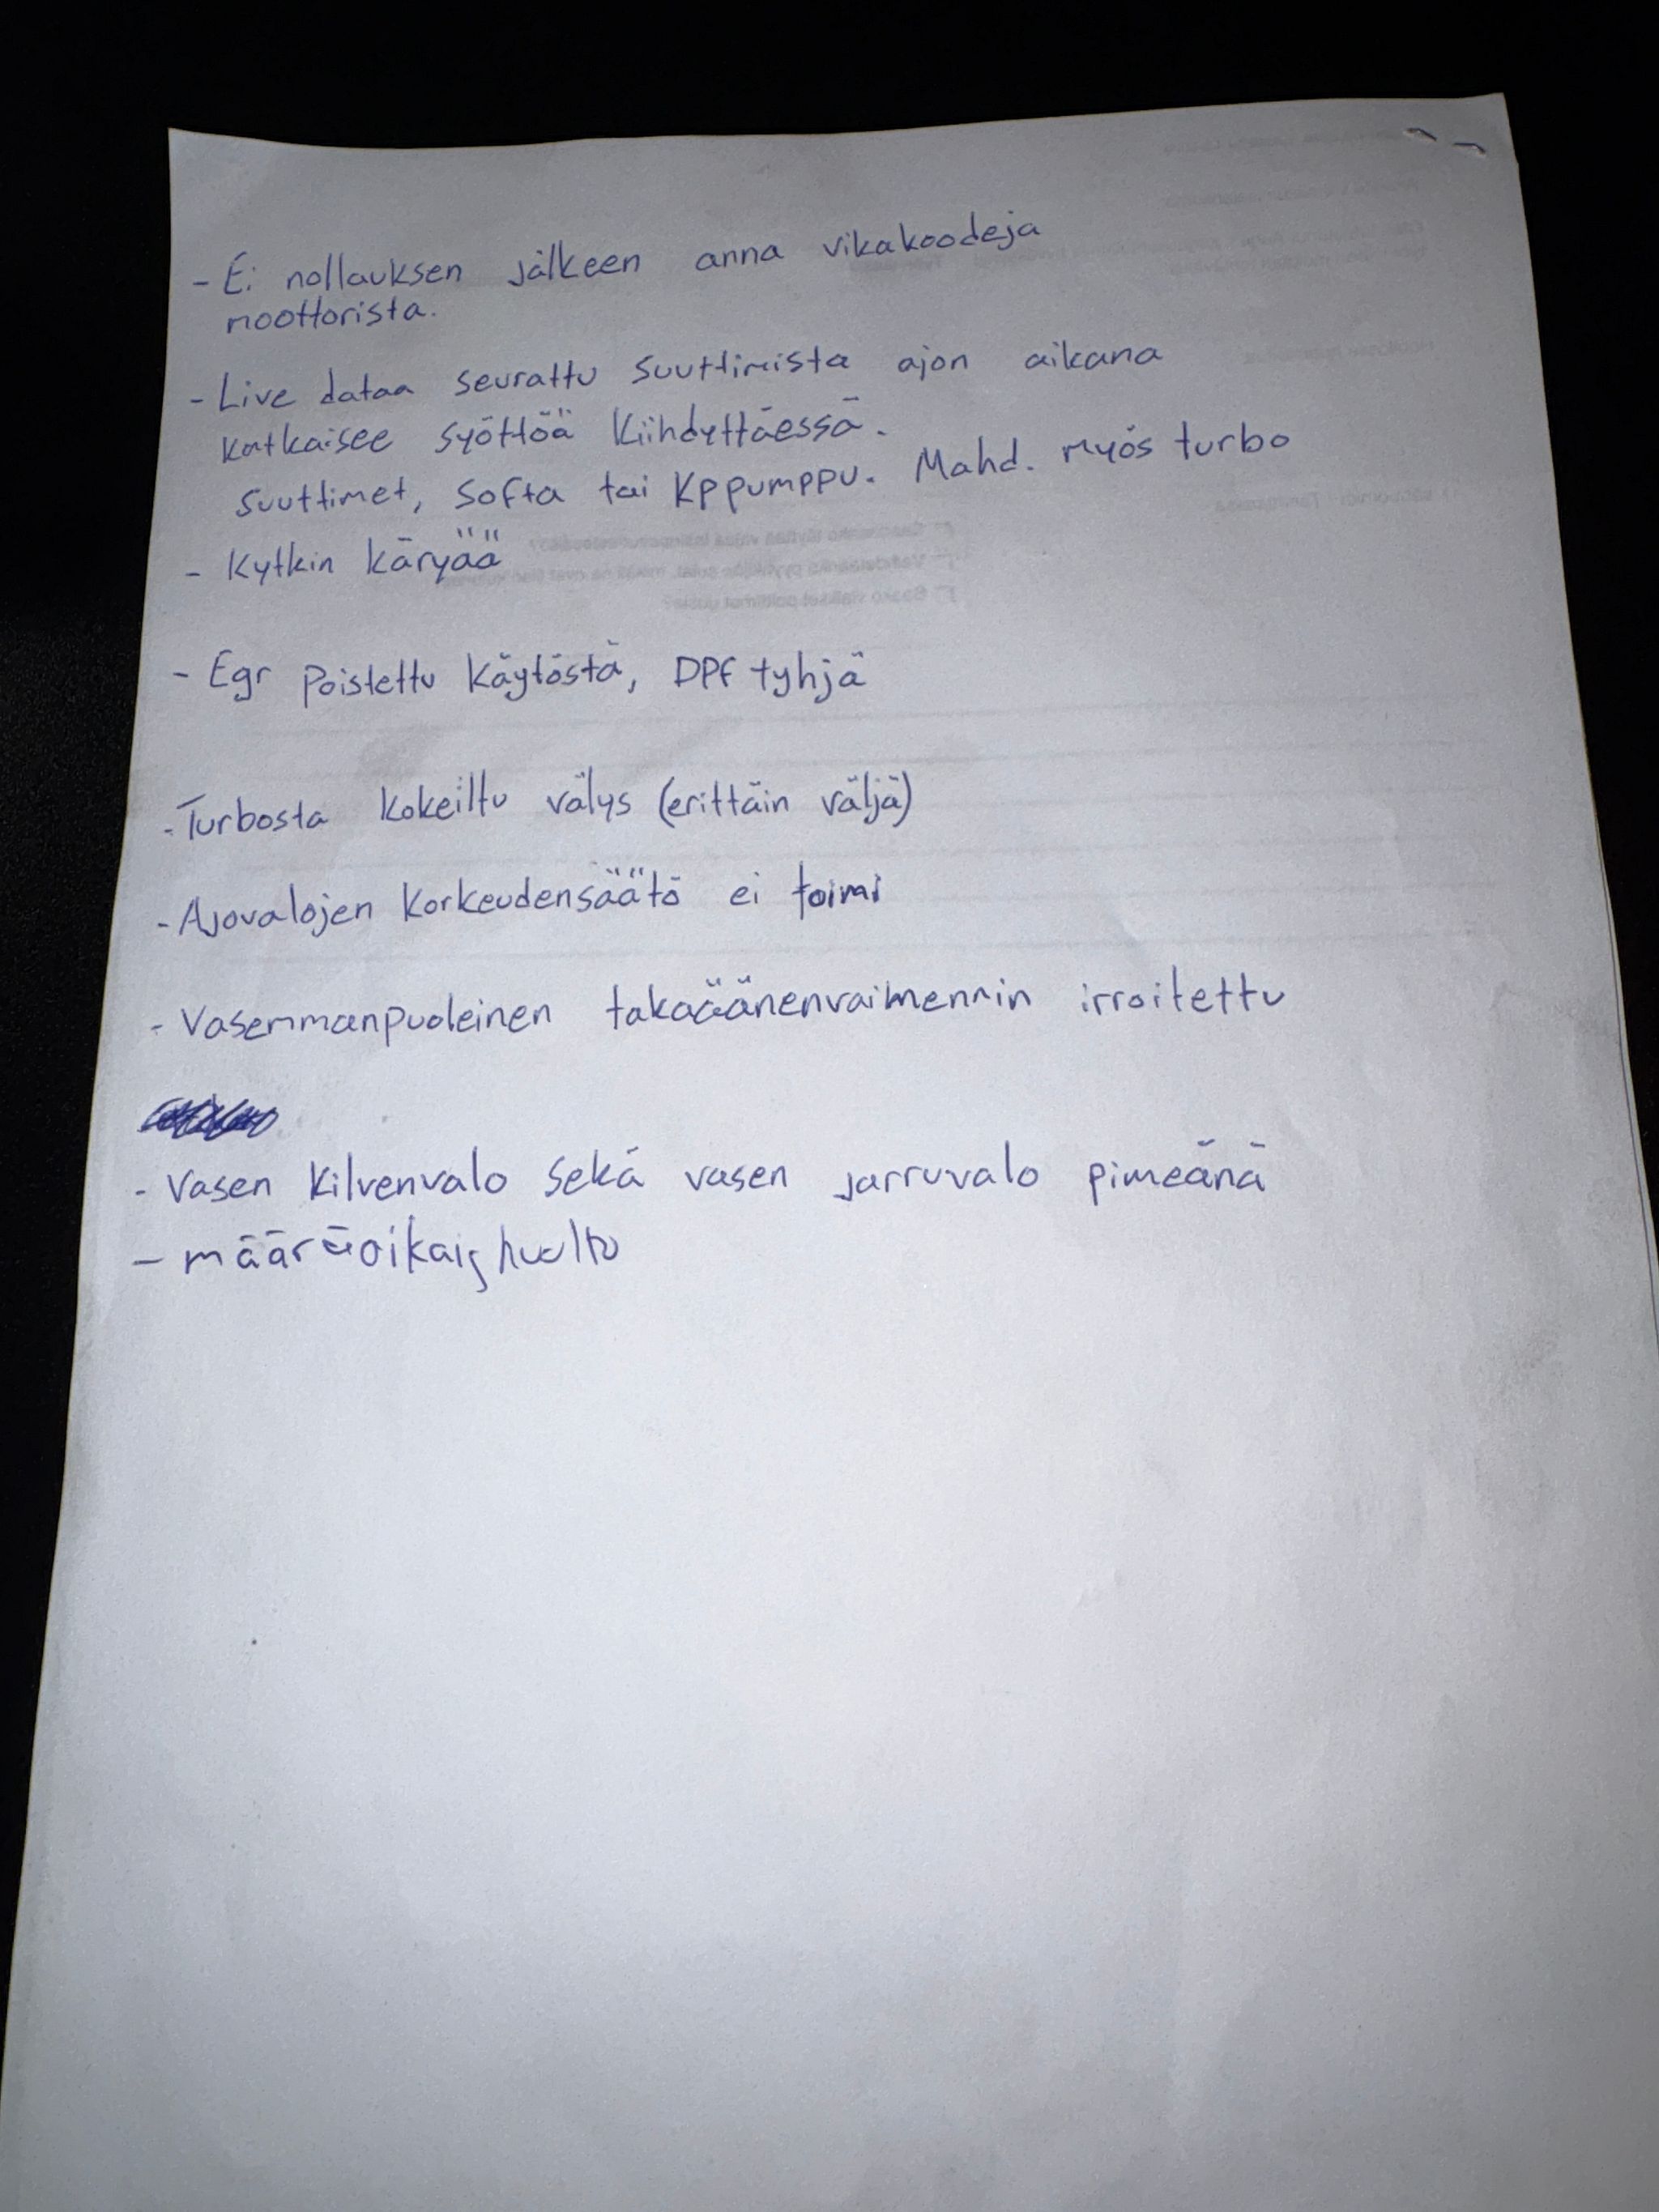 - Ei nollauksen jälkeen anna vikakoodeja
moottorista.
- Live dataa seurattu suuttimista ajon aikana
katkaisee syöttöä kiihdyttäessä.
suuttimet, softa tai kppumppu. Mahd. myös turbo
- Kytkin käryää
- Egr poistettu käytöstä, DPF tyhjä
- Turbosta kokeiltu välys (erittäin väljä)
- Ajovalojen korkeudensäätö ei toimi
- Vasemmanpuoleinen takaäänenvaimennin irroitettu
- Vasen kilvenvalo sekä vasen jarruvalo pimeänä
- määräaikaishuolto